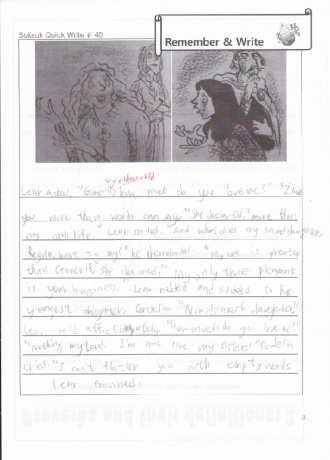 Suksuk Quick Write # 40
Remember & Write
my eldest child
Lear asked, "Goneril, how much do you love me?" "I love
you more than words can say," she declared, "more than
my own life." Lear smiled. "And what does my second daughter
Regan have to say?" he demanded. "My love is greater
than Goneril's," she claimed. "My only true pleasure
is your happiness." Lear nodded and turned to his
youngest daughter Cordelia. "Now dearest daughter,"
Lear said affectionately. "How much do you love me?"
"Nothing, my Lord. I'm not like my sisters," Cordelia
cried. "I can't flatter you with empty words
Lear frowned.
3